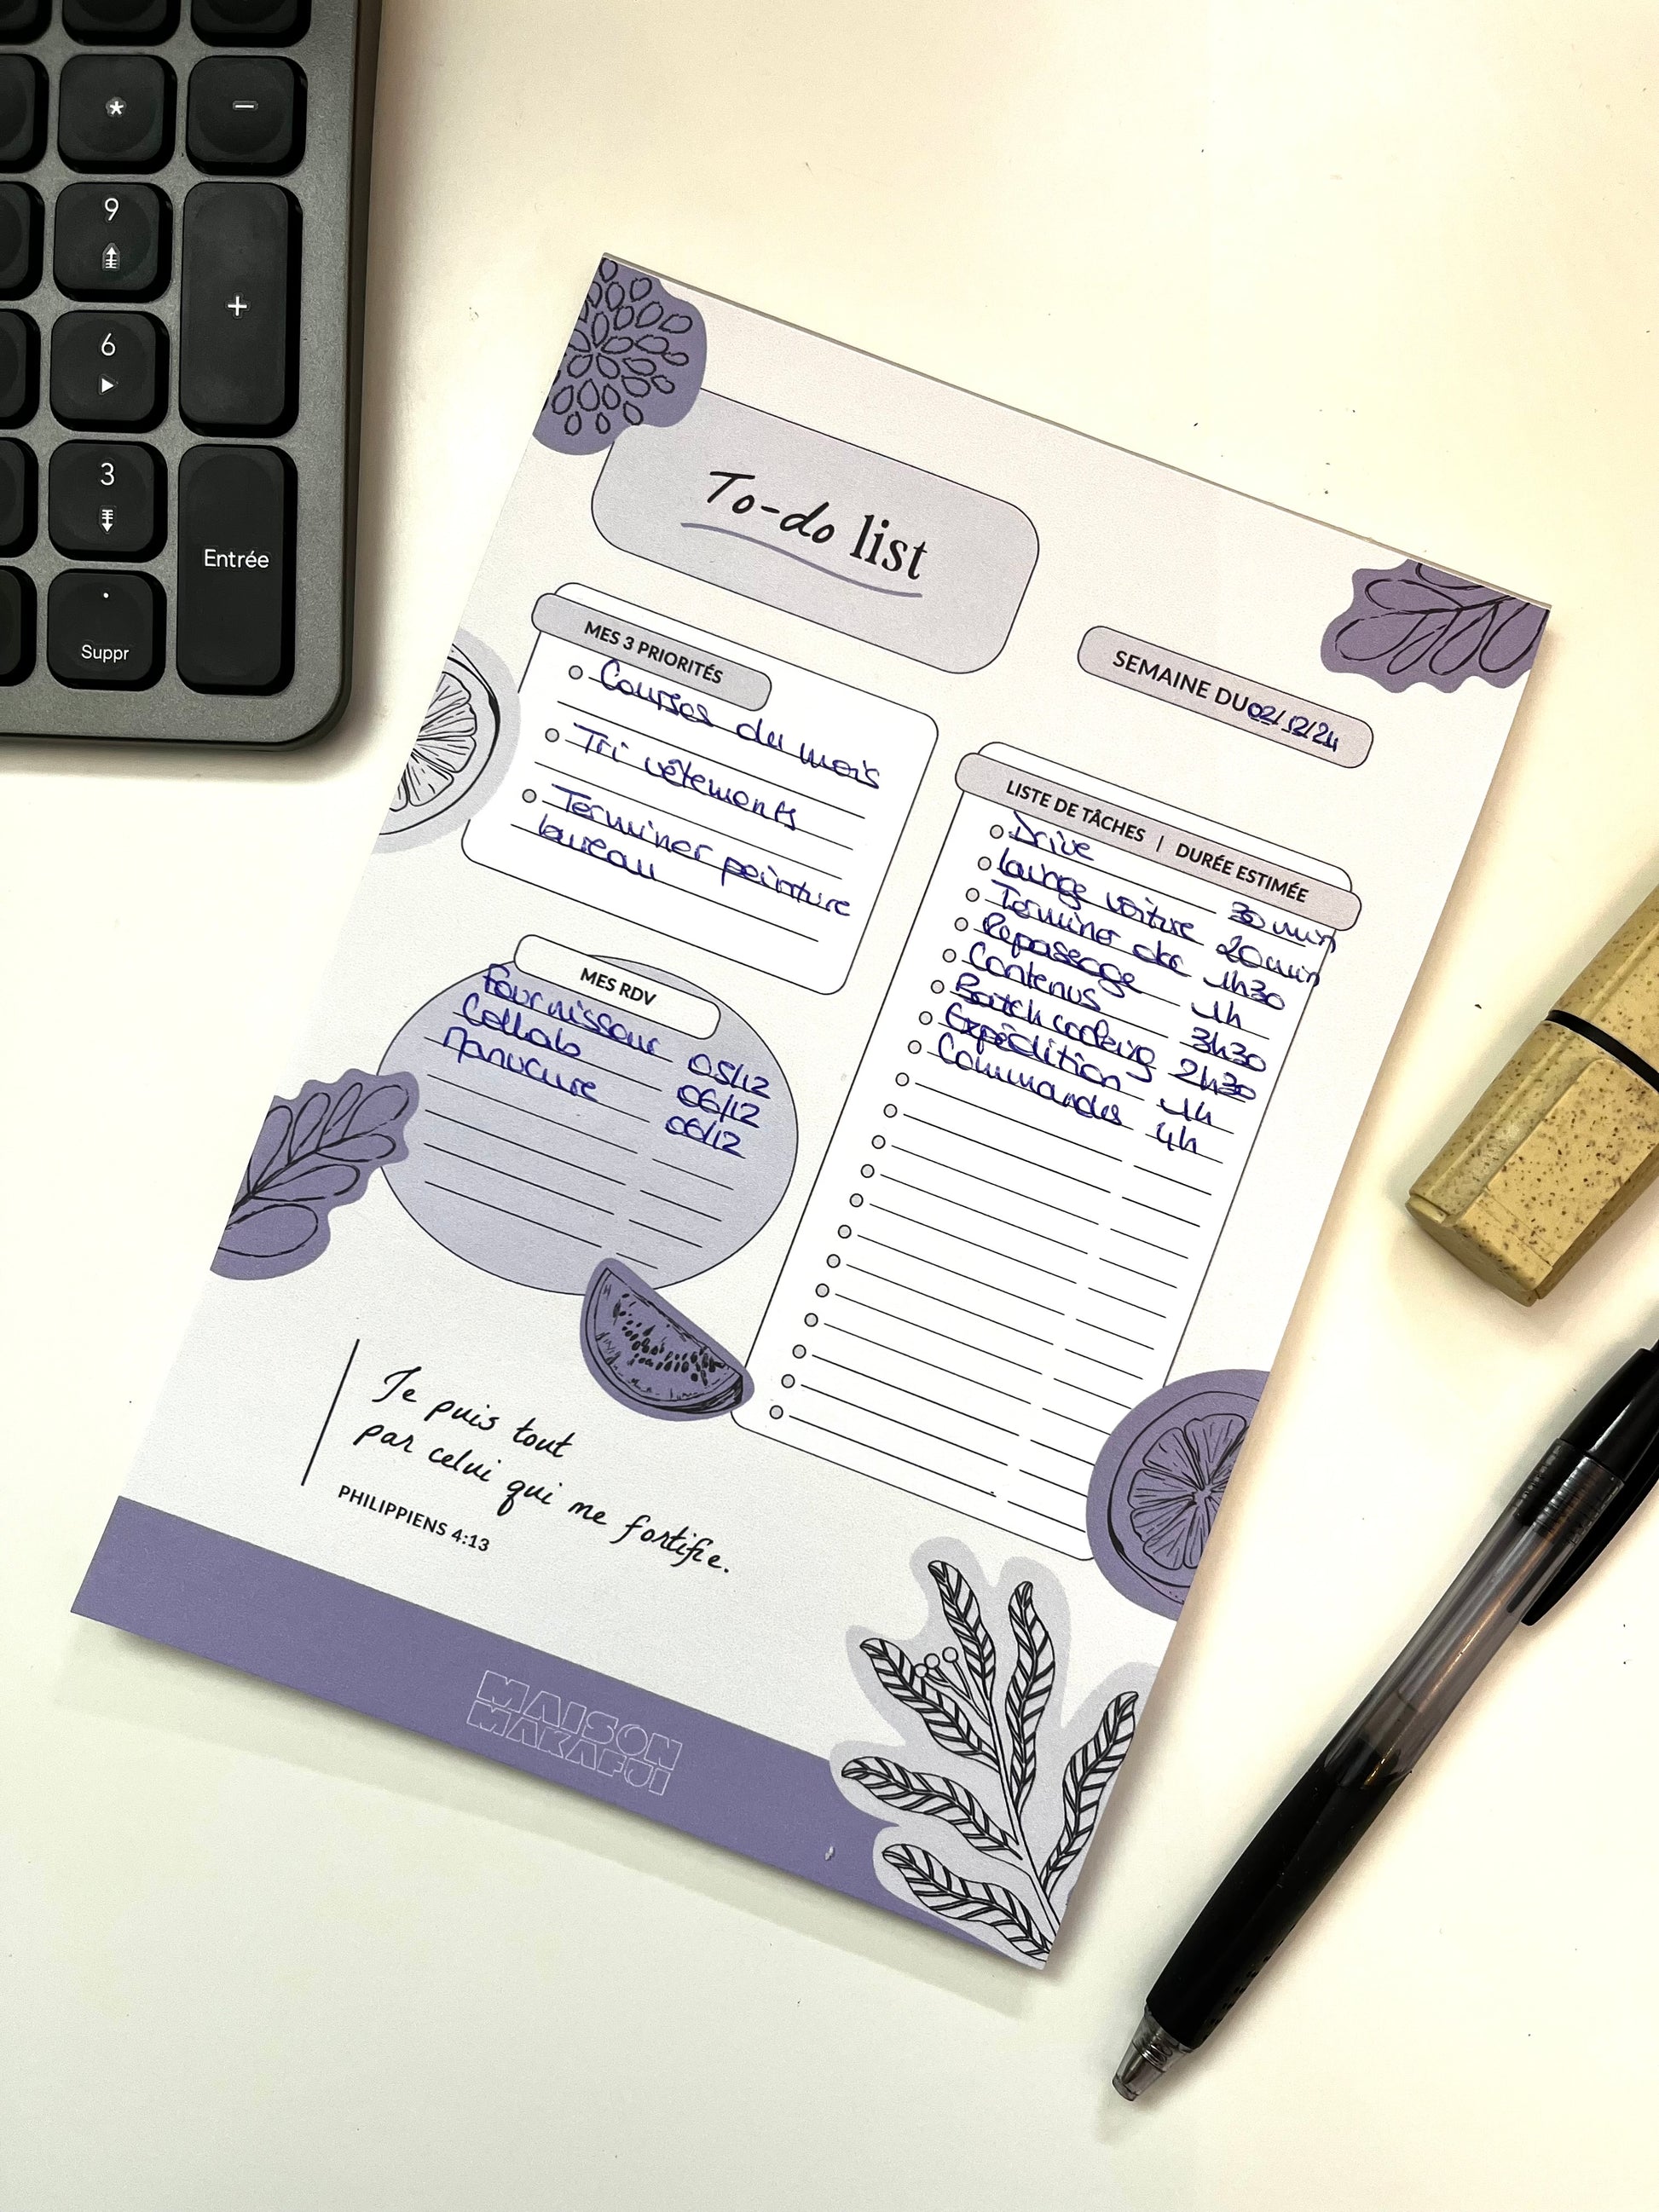 *
-
9
+
6
3
Entrée
.
Suppr
To-do list
SEMAINE DU 02/12/24
MES 3 PRIORITÉS
Courses du mois
Tri vêtements
Terminer peinture
bureau
MES RDV
Fournisseur 05/12
Collab 06/12
Manucure 06/12
LISTE DE TÂCHES | DURÉE ESTIMÉE
Drive 30 min
lavage voiture 20 min
Terminer 1h30
Repassage 1h
Contenus 3h30
Batch cooking 2h30
Expédition 1h
Commandes 4h
Je puis tout
par celui qui me fortifie.
PHILIPPIENS 4:13
MAISON
MAKAFUI